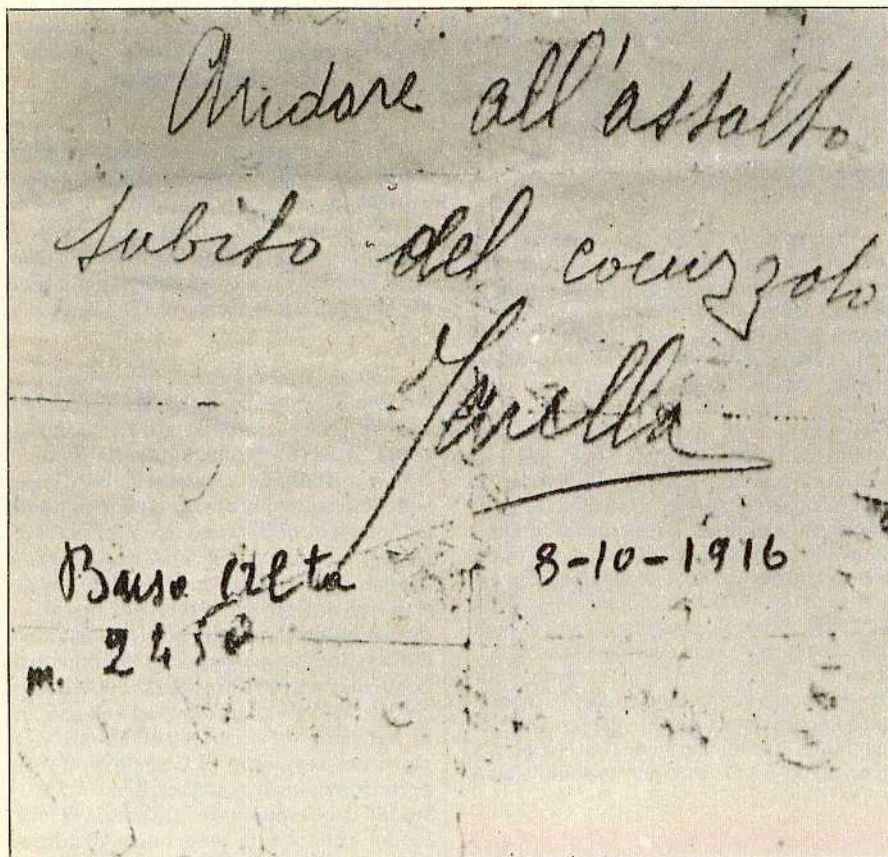 Andare all'assalto
subito del cocuzzolo
Busa Alta
8-10-1916
m. 2450